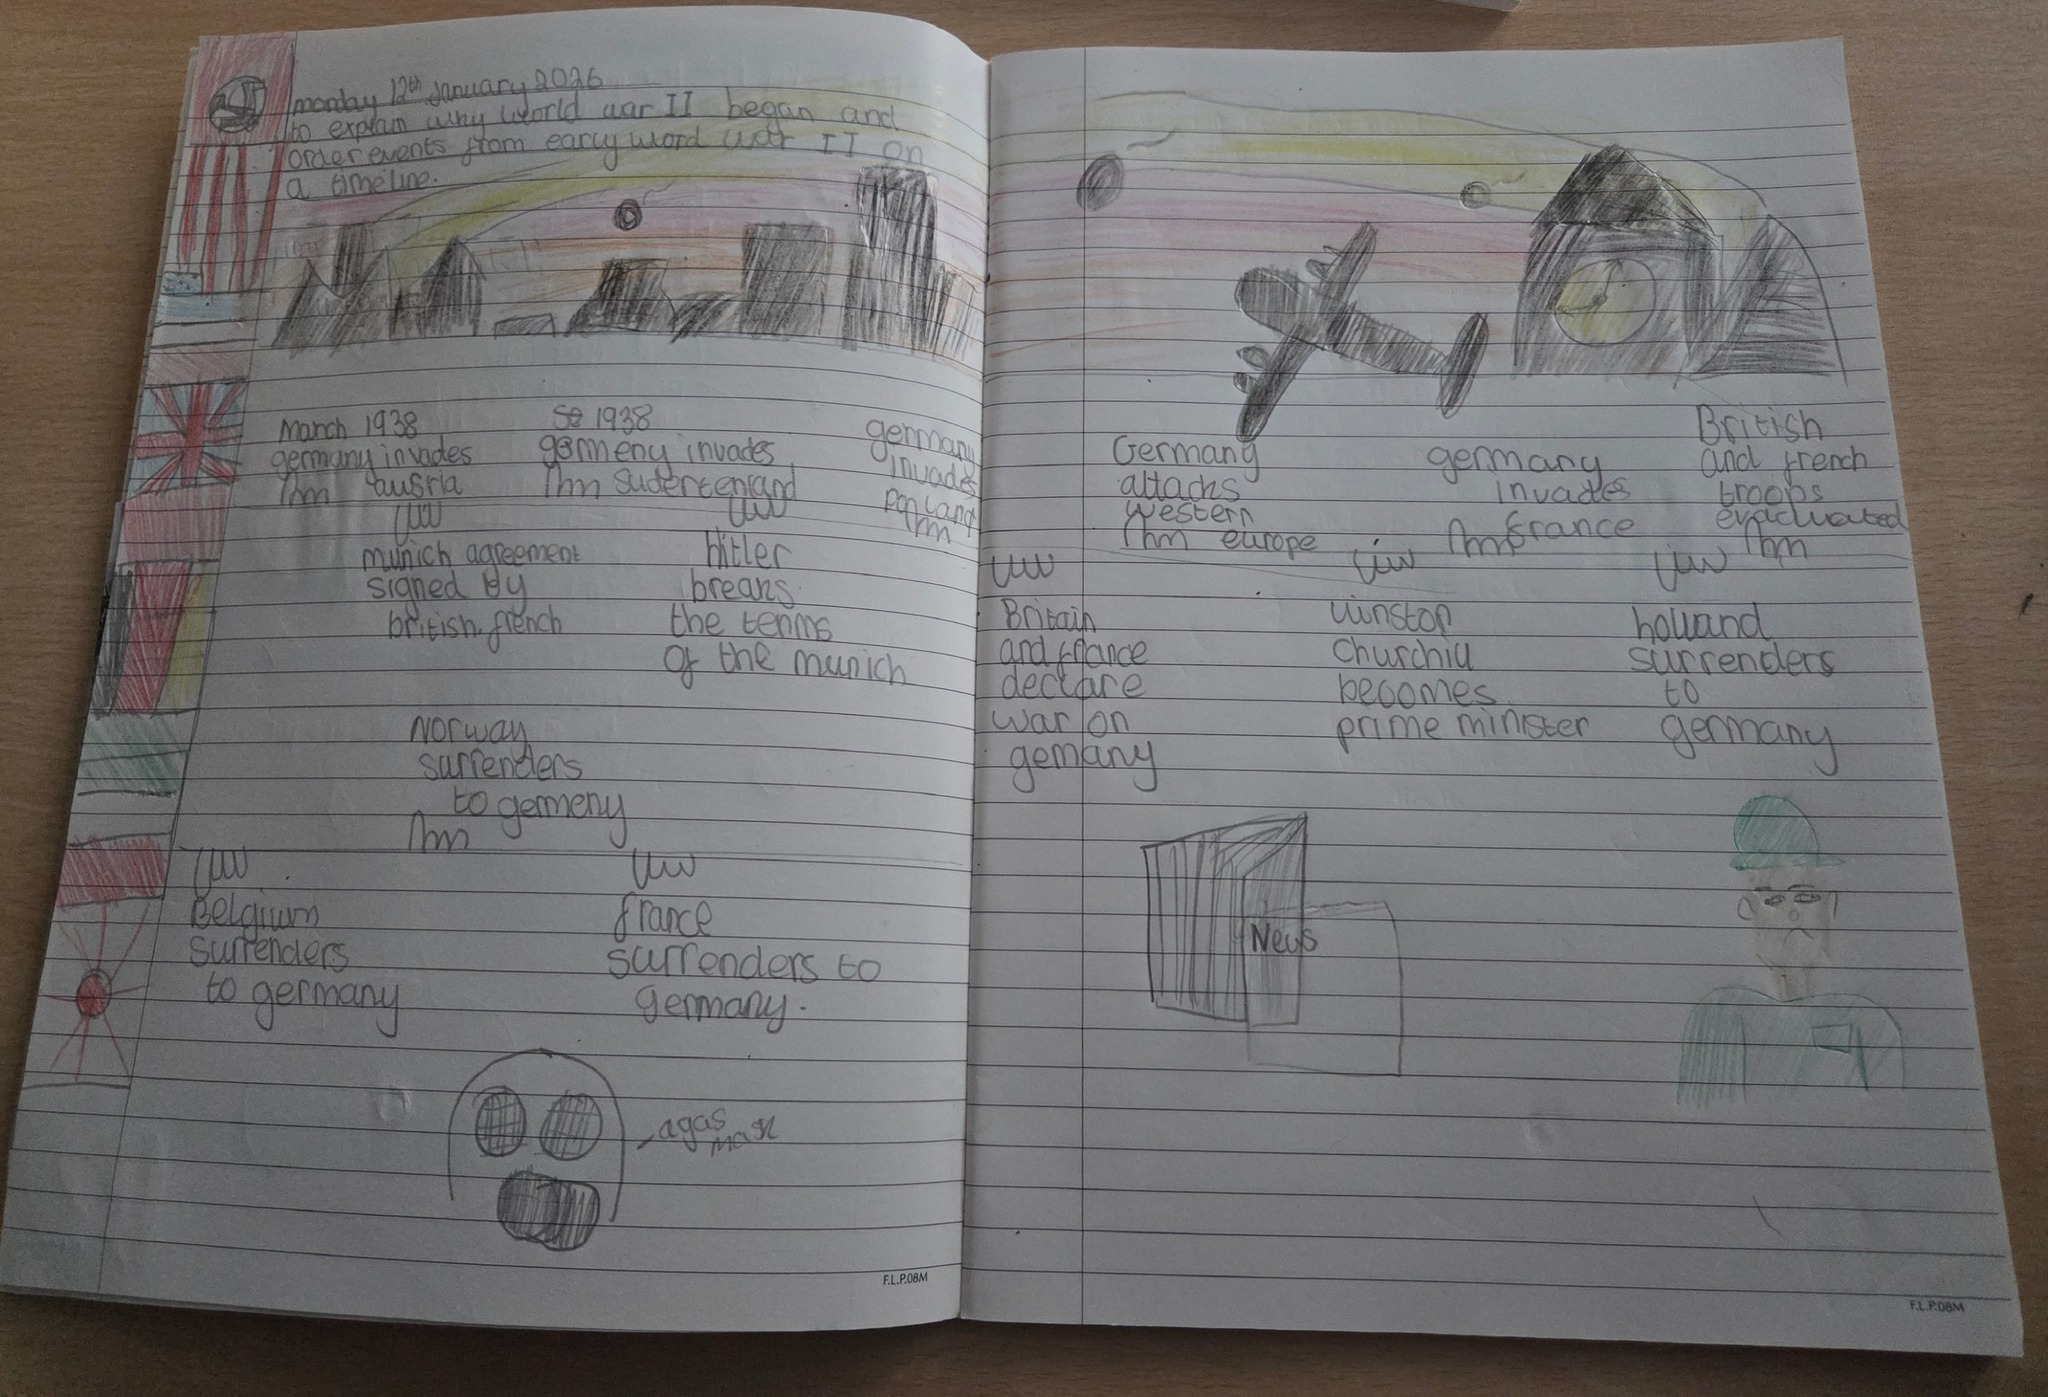 monday 12th January 2026
to explain why world war II began and
order events from early word war II on
a timeline.
March 1938
germany invades
ausria
Se 1938
germeny invades
sudertenland
germany
invades
munich agreement
signed by
british french
hitler
breaks
the terms
of the munich
Norway
surrenders
to germeny
Belgium
surrenders
to germany
france
surrenders to
germany.
agas
mask
F.L.P.08M
Germany
attacks
western
europe
germany
invades
france
British
and french
troops
Britain
and france
declare
war on
gemany
winston
churchill
becomes
prime minister
holland
surrenders
to
germany
News
F.L.P.08M